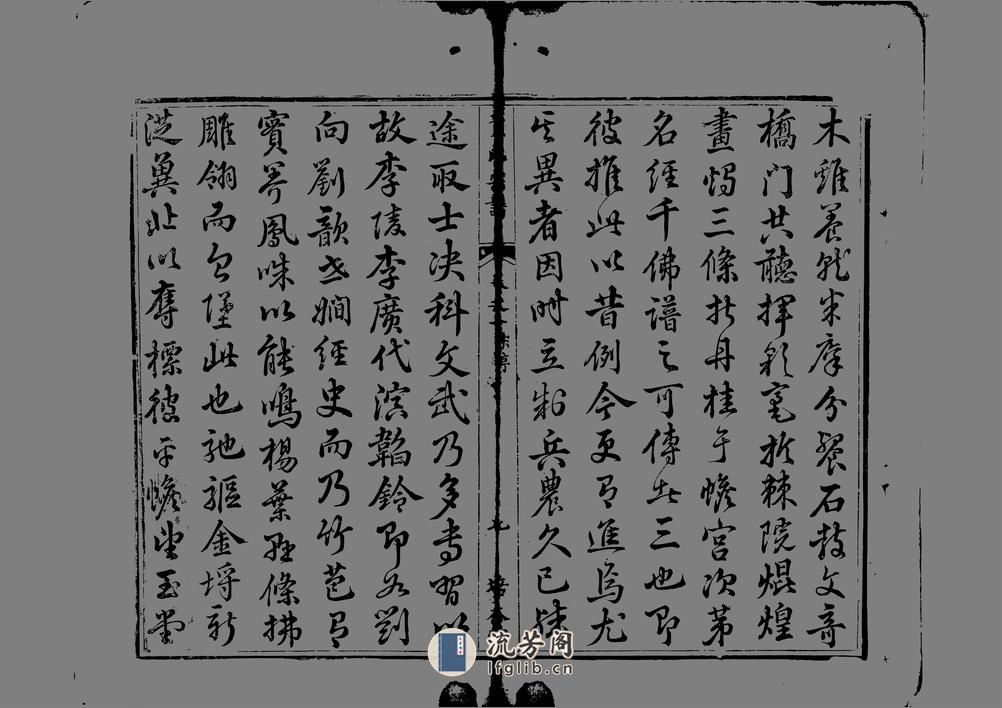 木雞養就米廩分餐石鼓文奇
橋門共聽揮彩毫於棘院焜煌
畫燭三條折丹桂于蟾宮次第
名經千佛譜之可傳者三也即
彼推此以昔例今更有進焉尤
其異者因時立制兵農久已殊
途取士決科文武乃多專習以
故李陵李廣代演韜鈐即如劉
向劉歆世嫻經史而乃竹苞有
實苯鳳咮以能鳴楊葉無條拂
雕翎而命墮此也馳驅金埒新
從冀北以奪標彼乎蟾望玉堂
流芳阁
lfglib.cn